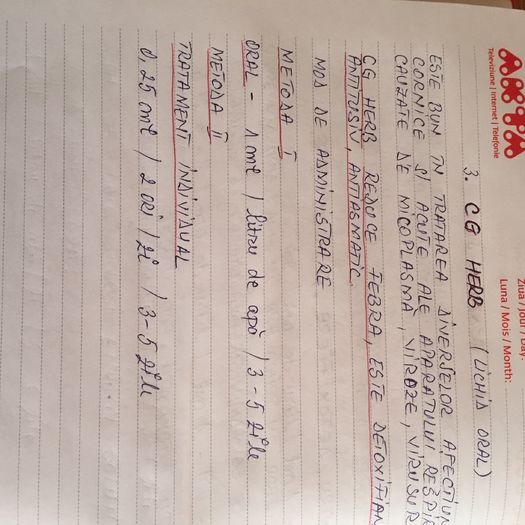 AKTA
Televiziune | Internet | Telefonie
Ziua / Jour / Day:
Luna / Mois / Month:
3. CG HERB (LICHID ORAL)
ESTE BUN IN TRATAREA DIVERSELOR AFECTIUN
CORNICE ȘI ACUTE ALE APARATULUI RESPIR
CAUZATE DE MICOPLASMĂ, VIROZE, VIRUSUR
CG HERB REDUCE FEBRA, ESTE DETOXIFIAN
ANTITUSIV, ANTIASMATIC.
MOD DE ADMINISTRARE
METODA I
ORAL - 1 ml / litru de apă / 3-5 zile
METODA II
TRATAMENT INDIVIDUAL
0,25 ml / 2 ori / zi / 3-5 zile